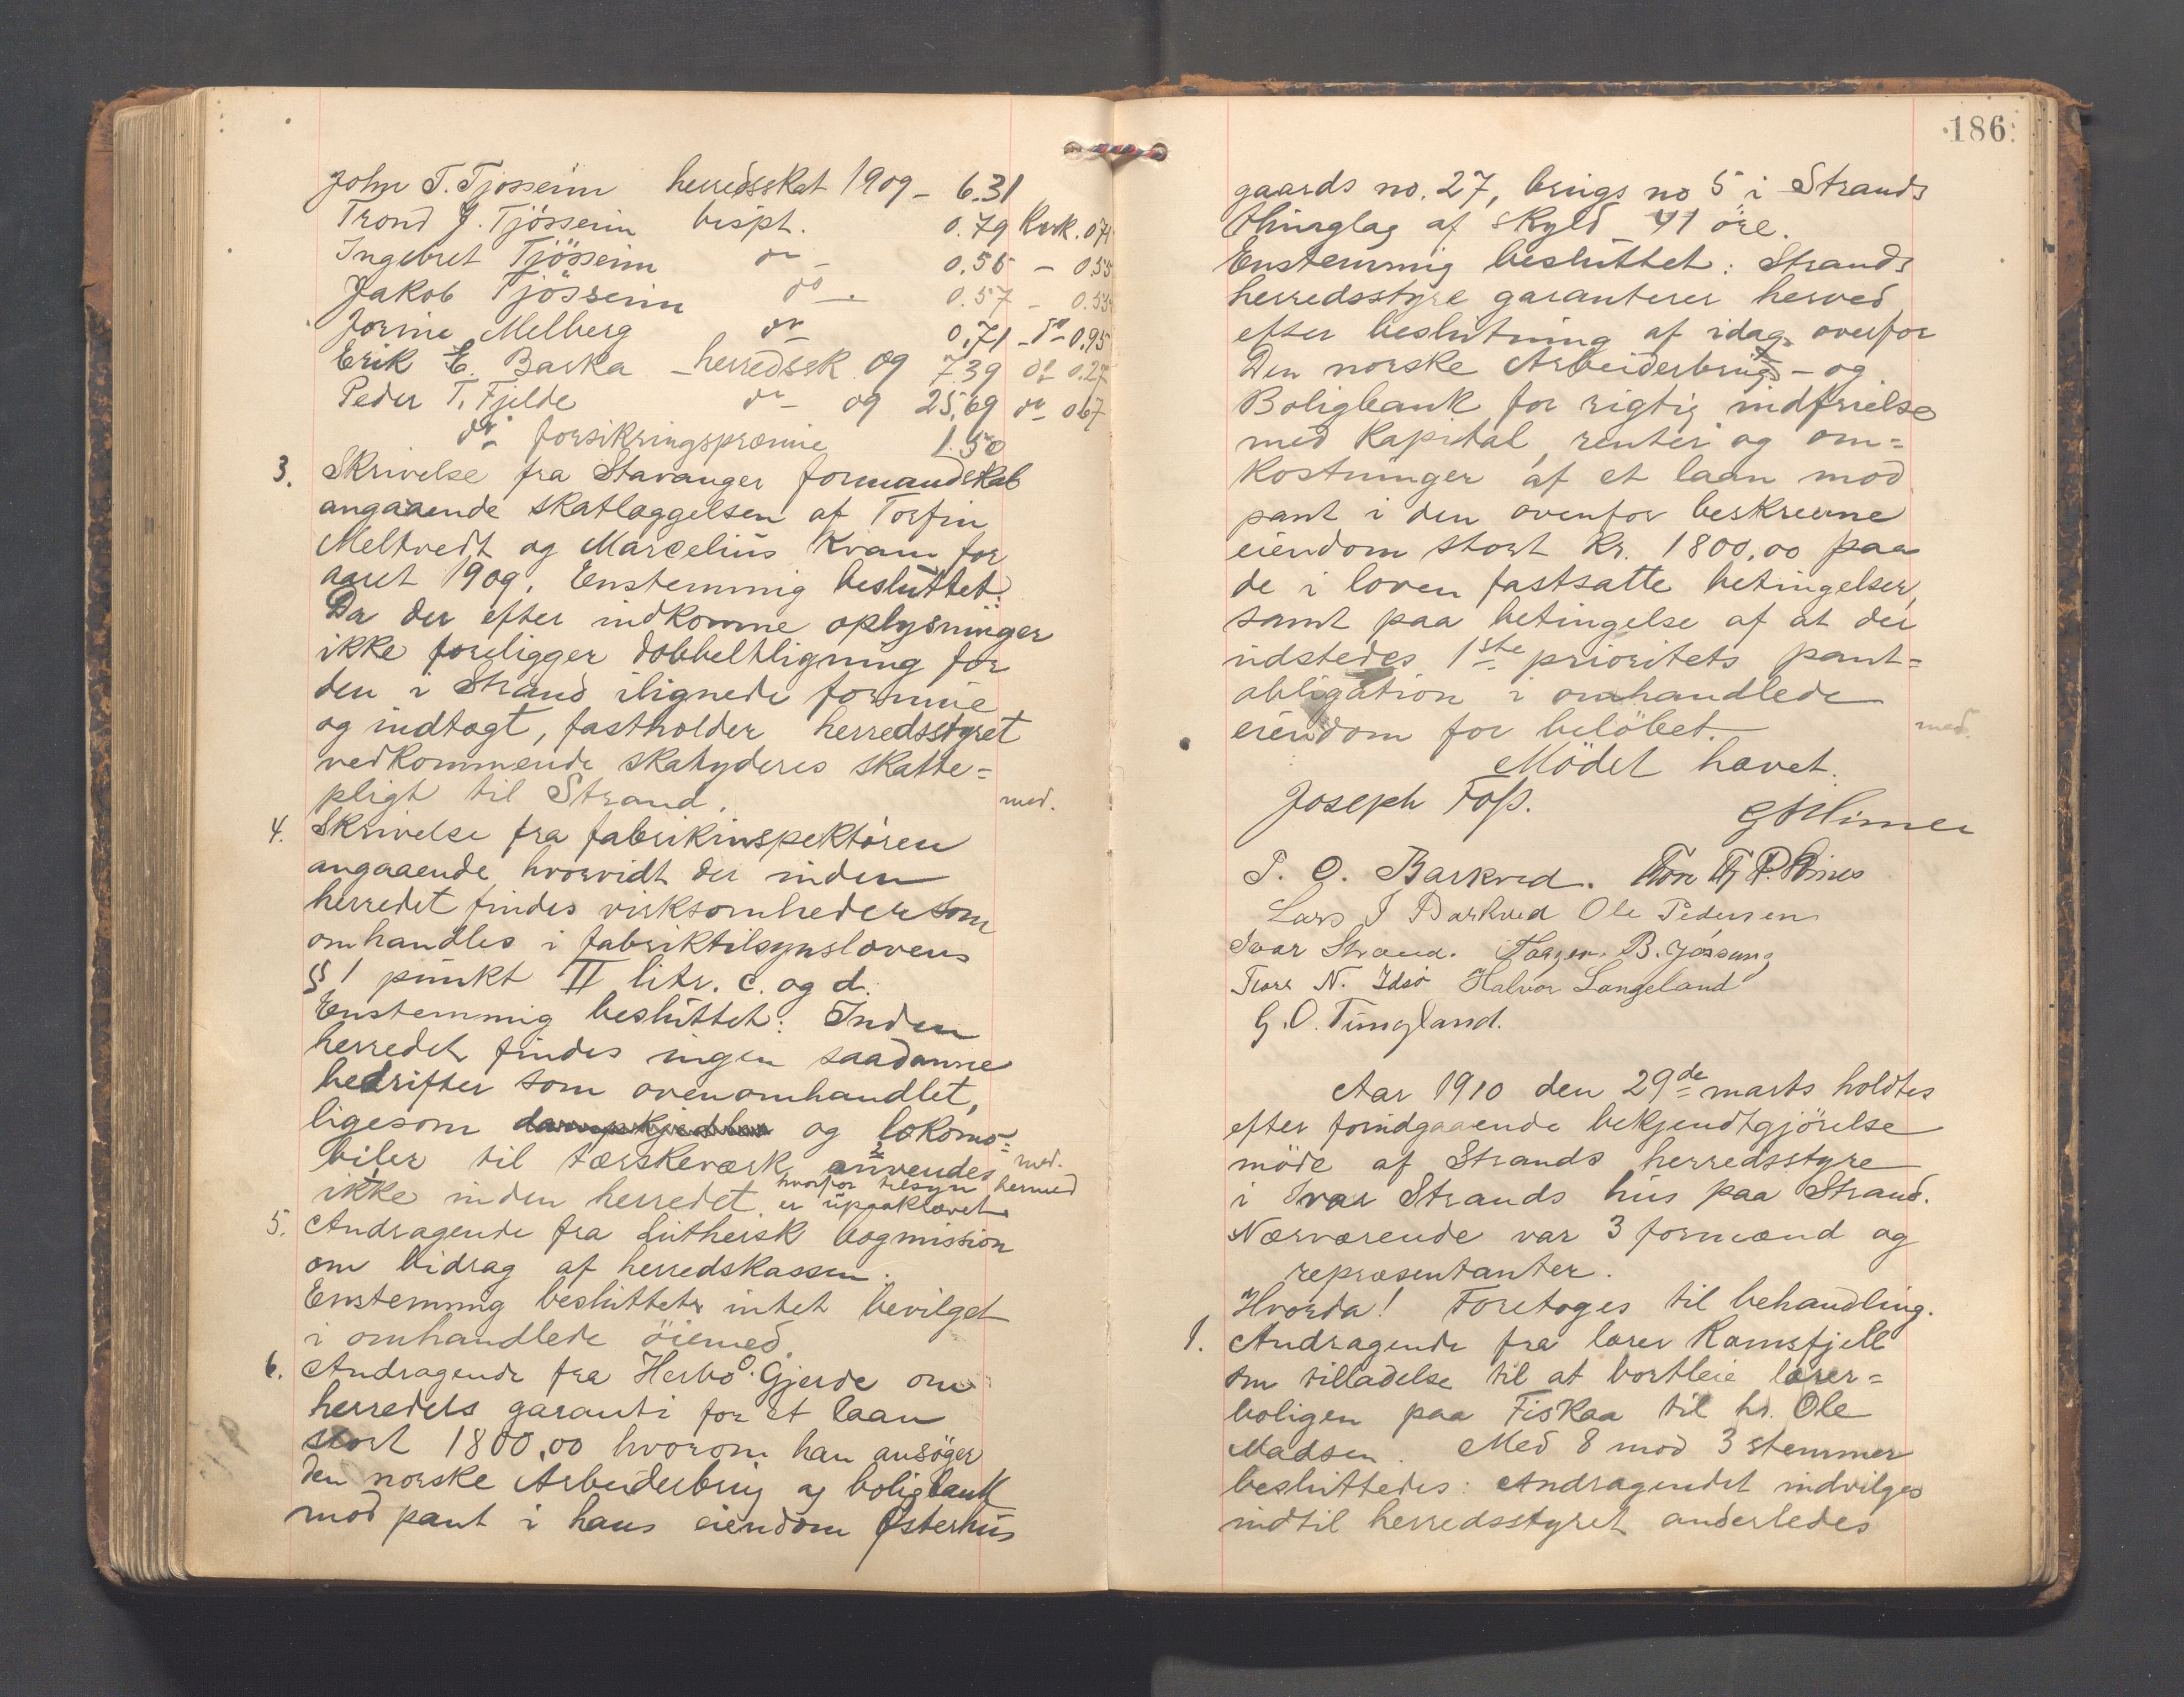 John T. Tjosseim herredsskat 1909 – 6.31
Trond J. Tjösseim bispt. 0.79 Kvk. 0.74
Ingebret Tjösseim do – 0.55 – 0.55
Jakob Tjösseim do – 0.57 – 0.53
Jorine Melberg do 0,71 – do – 0.95
Erik E. Barka – herredssk 09 7.39 do 0.27
Peder T. Fjelde do – 09 25,69 do 0.67
do forsikringspræmie 1.50
3. Skrivelse fra Stavanger formandskab
angaaende skatlæggelsen af Torfin
Meltvedt og Marcelius Kvam for
aaret 1909. Enstemmig besluttet:
Da der efter indkomne oplysninger
ikke foreligger dobbeltligning for
den i Strand ilignede formue
og indtægt, fastholder herredsstyret
vedkommende skatyderes skatte=
pligt til Strand. med.
4. Skrivelse fra fabrikinspektören
angaaende hvorvidt der inden
herredet findes virksomheder som
omhandles i fabriktilsynslovens
§ 1 punkt II litr. c. og d.
Enstemmig besluttet: Inden
herredet findes ingen saadanne
bedrifter som ovenomhandlet,
ligesom dampkjedler og lokomo=
biler til tærskeværk anvendes med.
ikke inden herredet hvorfor tilsyn hermed
er upaakrævet
5. Andragende fra Luthersk bogmission
om bidrag af herredskassen.
Enstemmig besluttet intet bevilget
i omhandlede öiemed.
6. Andragende fra Herbo O. Gjerde om
herredets garanti for et laan
stort 1800,00 hvorom han ansöger
den norske Arbeiderbrug og boligbank
mod pant i hans eiendom Østerhus
186
gaards no. 27, brugs no 5 i Strands
thinglag af skyld 41 öre.
Enstemmig besluttet: Strands
herredsstyre garanterer herved
efter beslutning af idag overfor
Den norske Arbeiderbrugs – og
Boligbank for rigtig indfrielse
med Kapital, renter og om=
kostninger af et laan mod
pant i den ovenfor beskrevne
eiendom stort Kr. 1800,00 paa
de i loven fastsatte betingelser,
samt paa betingelse af at der
udstedes 1ste prioritets pant=
obligation i omhandlede
eiendom for belöbet. med.
Mödet hævet.
Joseph Foss.
T. O. Barkved.
Lars J Barkved Ole Pedersen
Ivar Strand. B. Jössang
Tore N. Idsö Halvor Langeland
G. O. Tungland.
Aar 1910 den 29de marts holdtes
efter forudgaaende bekjendtgjörelse
möde af Strands herredsstyre
i Ivar Strands hus paa Strand.
Nærværende var 3 formænd og
repræsentanter.
Hvorda! Foretoges til behandling.
1. Andragende fra lærer Ramsfjell
om tilladelse til at bortleie lærer=
boligen paa Fiskaa til hr. Ole
Madsen. Med 8 mod 3 stemmer
besluttedes: Andragendet indvilges
indtil herredsstyret anderledes